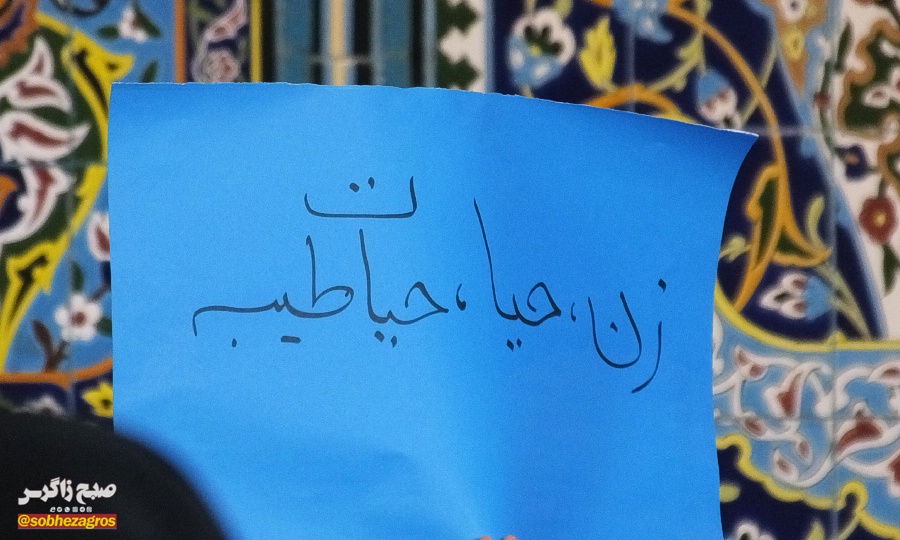 زن، حیا، حیات طیبه
صبح زاگرس
@sobhezagros